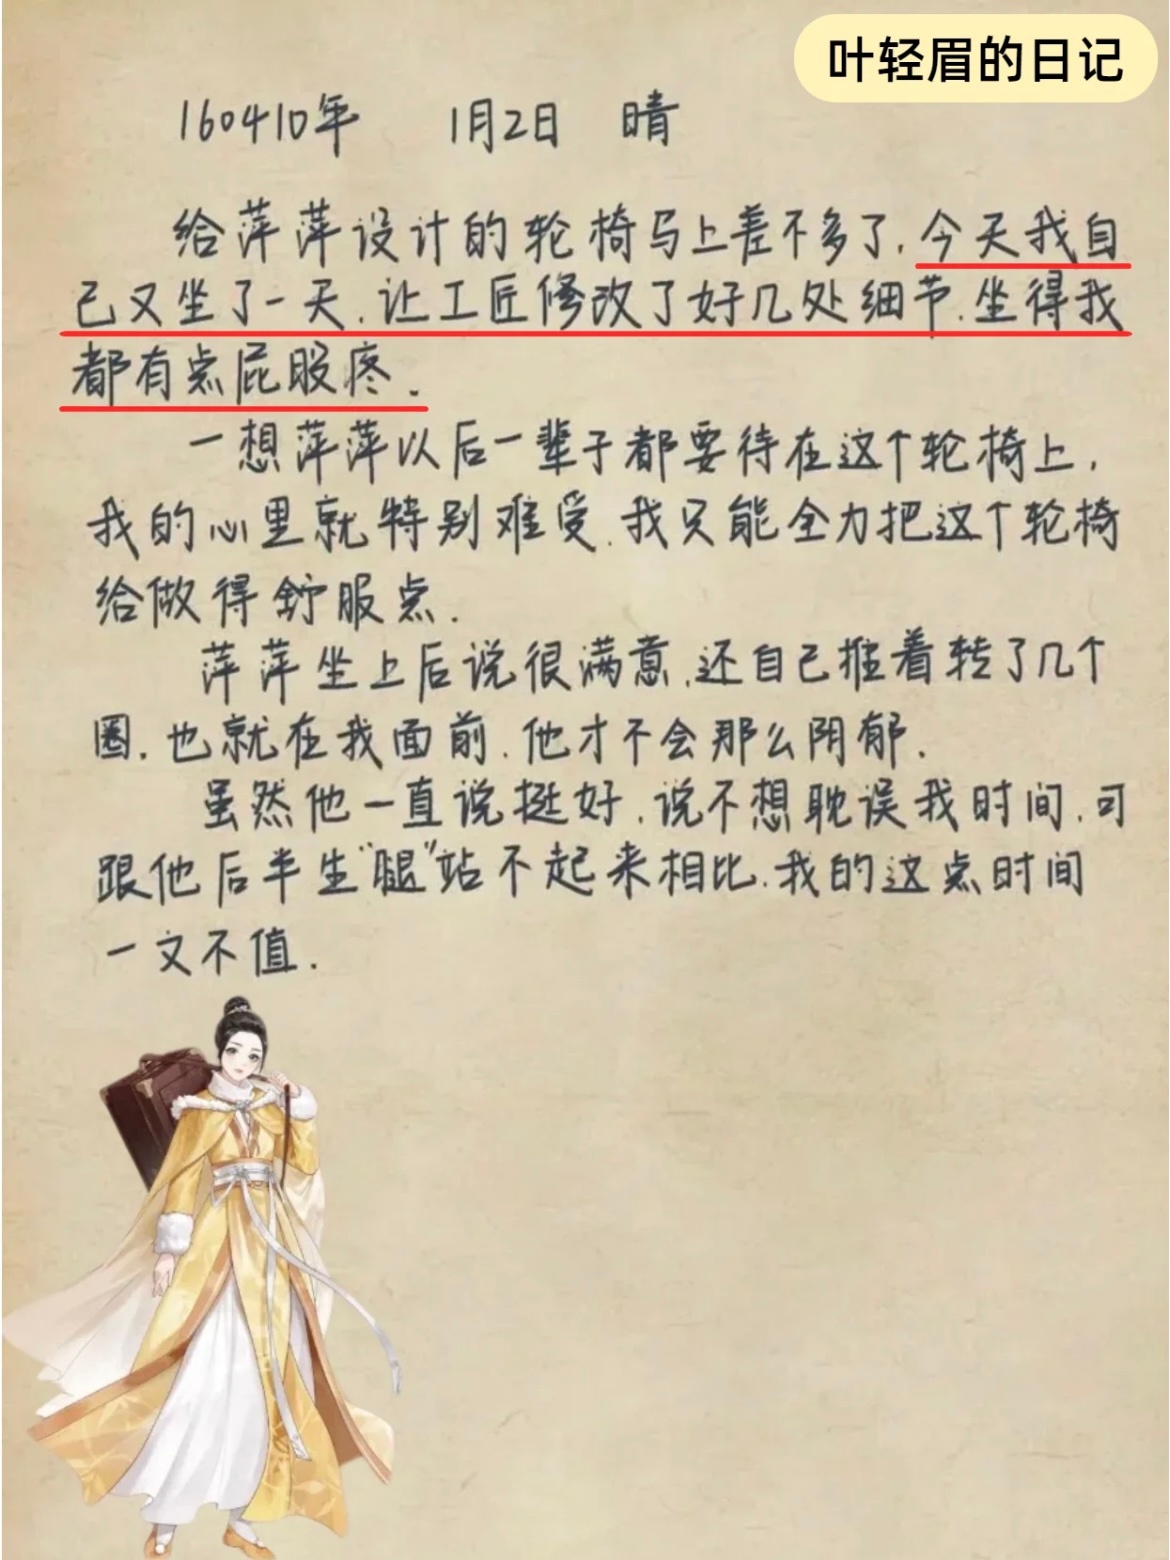 叶轻眉的日记
160410年 1月2日 晴
给萍萍设计的轮椅马上差不多了.今天我自
己又坐了一天.让工匠修改了好几处细节.坐得我
都有点屁股疼.
一想萍萍以后一辈子都要待在这个轮椅上,
我的心里就特别难受.我只能全力把这个轮椅
给做得舒服点.
萍萍坐上后说很满意.还自己推着转了几个
圈.也就在我面前.他才不会那么阴郁.
虽然他一直说挺好.说不想耽误我时间.可
跟他后半生"腿"站不起来相比.我的这点时间
一文不值.